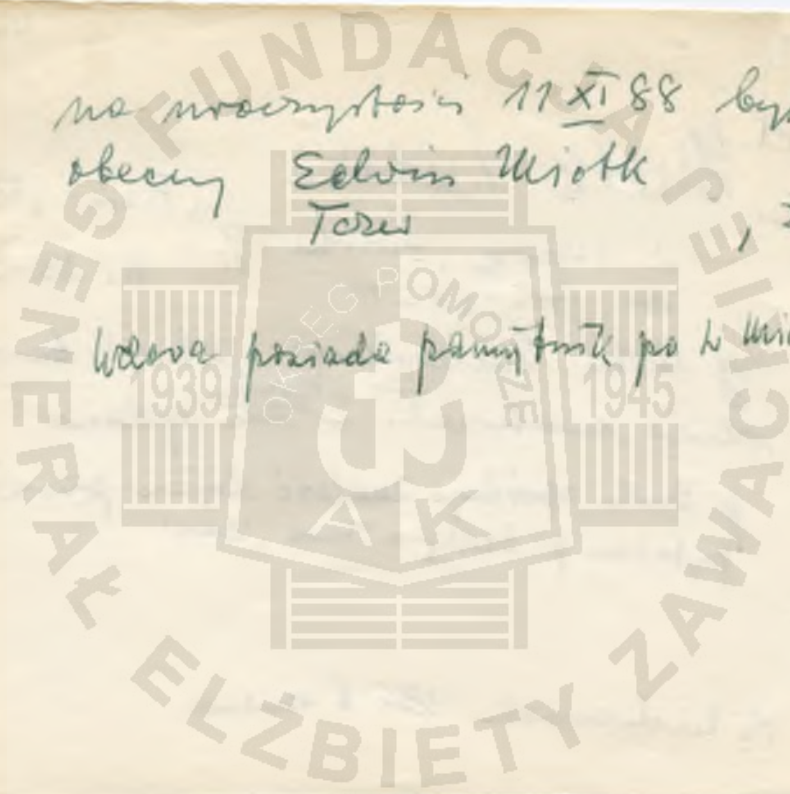 na uroczystości 11 XI 88 by
obecny Edwin Miotk
Tczew ,
Wdowa posiada pamiętnik po W Mio
FUNDACJA GENERAŁ ELŻBIETY ZAWACKIEJ
OKRĘG POMORZE
1939 1945
AK